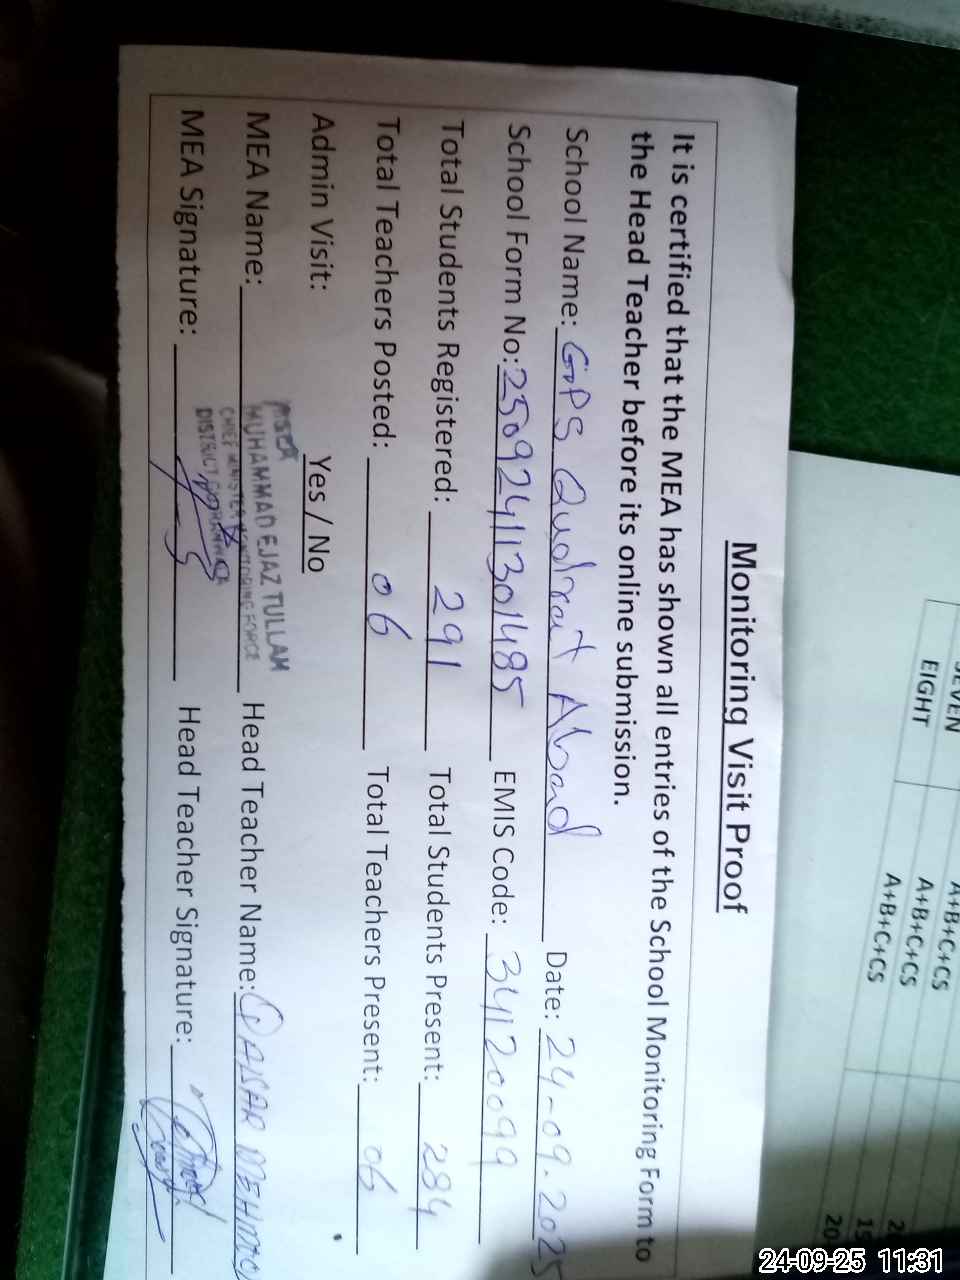 Monitoring Visit Proof
It is certified that the MEA has shown all entries of the School Monitoring Form to
the Head Teacher before its online submission.
School Name: GPS Qudrat Abad Date: 24-09.2025
School Form No: 25092411301485 EMIS Code: 34120099
Total Students Registered: 291 Total Students Present: 284
Total Teachers Posted: 06 Total Teachers Present: 06
Admin Visit: Yes / No
MUHAMMAD EJAZ TULLAH
MEA Name: Head Teacher Name: QAISAR MEHMOO
CHIEF MINISTER MONITORING FORCE
DISTRICT
MEA Signature: Head Teacher Signature:
SEVEN A+B+C+CS
EIGHT A+B+C+CS
A+B+C+CS
20
24-09-25 11:31